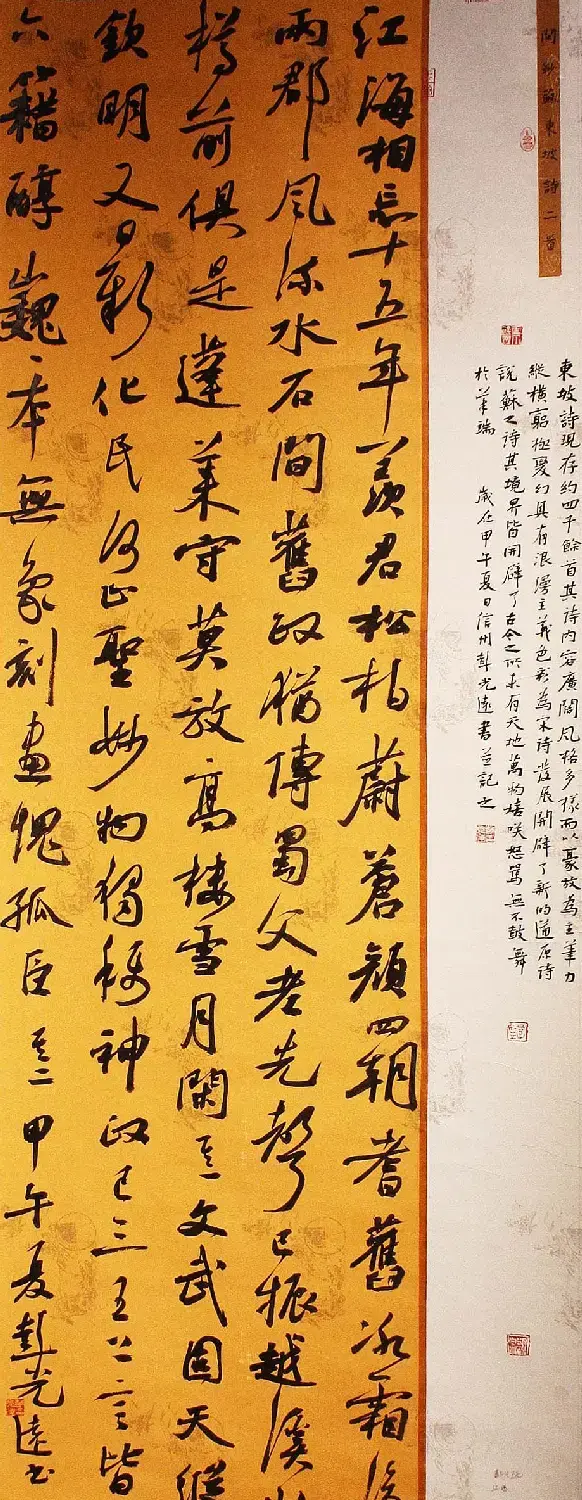 閒抄蘇東坡詩二首
東坡詩現存約四千餘首其詩内容廣闊風格多樣而以豪放為主筆力
縱横窮極變幻具有浪漫主義色彩為宋詩發展開辟了新的道原詩
說蘇之詩其境界皆開辟了古今之所未有天地萬物嬉咲怒駡無不鼓舞
於筆端 歲在甲午夏日信州彭光遠書並記之
江海相忘十五年羨君松柏蔚蒼顔四朝耆舊冰霜後
兩郡風流水石間舊政猶傳蜀父老先聲已振越溪山
樽前俱是蓬莱守莫放高樓雪月閑其一文武固天縱
欽明又日新化民何止聖妙物獨稱神政已三王上言皆
六籍醇巍巍本無象刻畫愧孤臣其二甲午夏彭光遠書